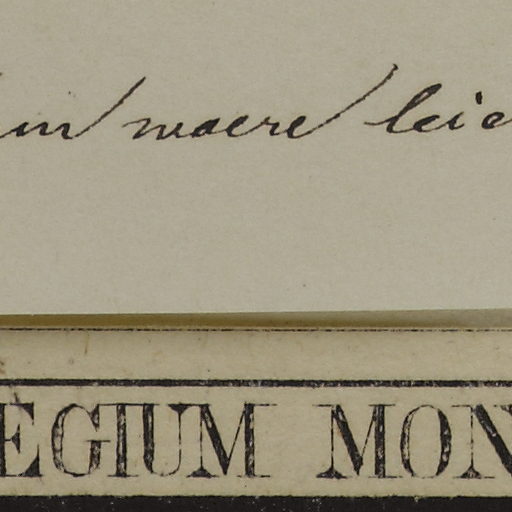 waere leie
EGIUM MON